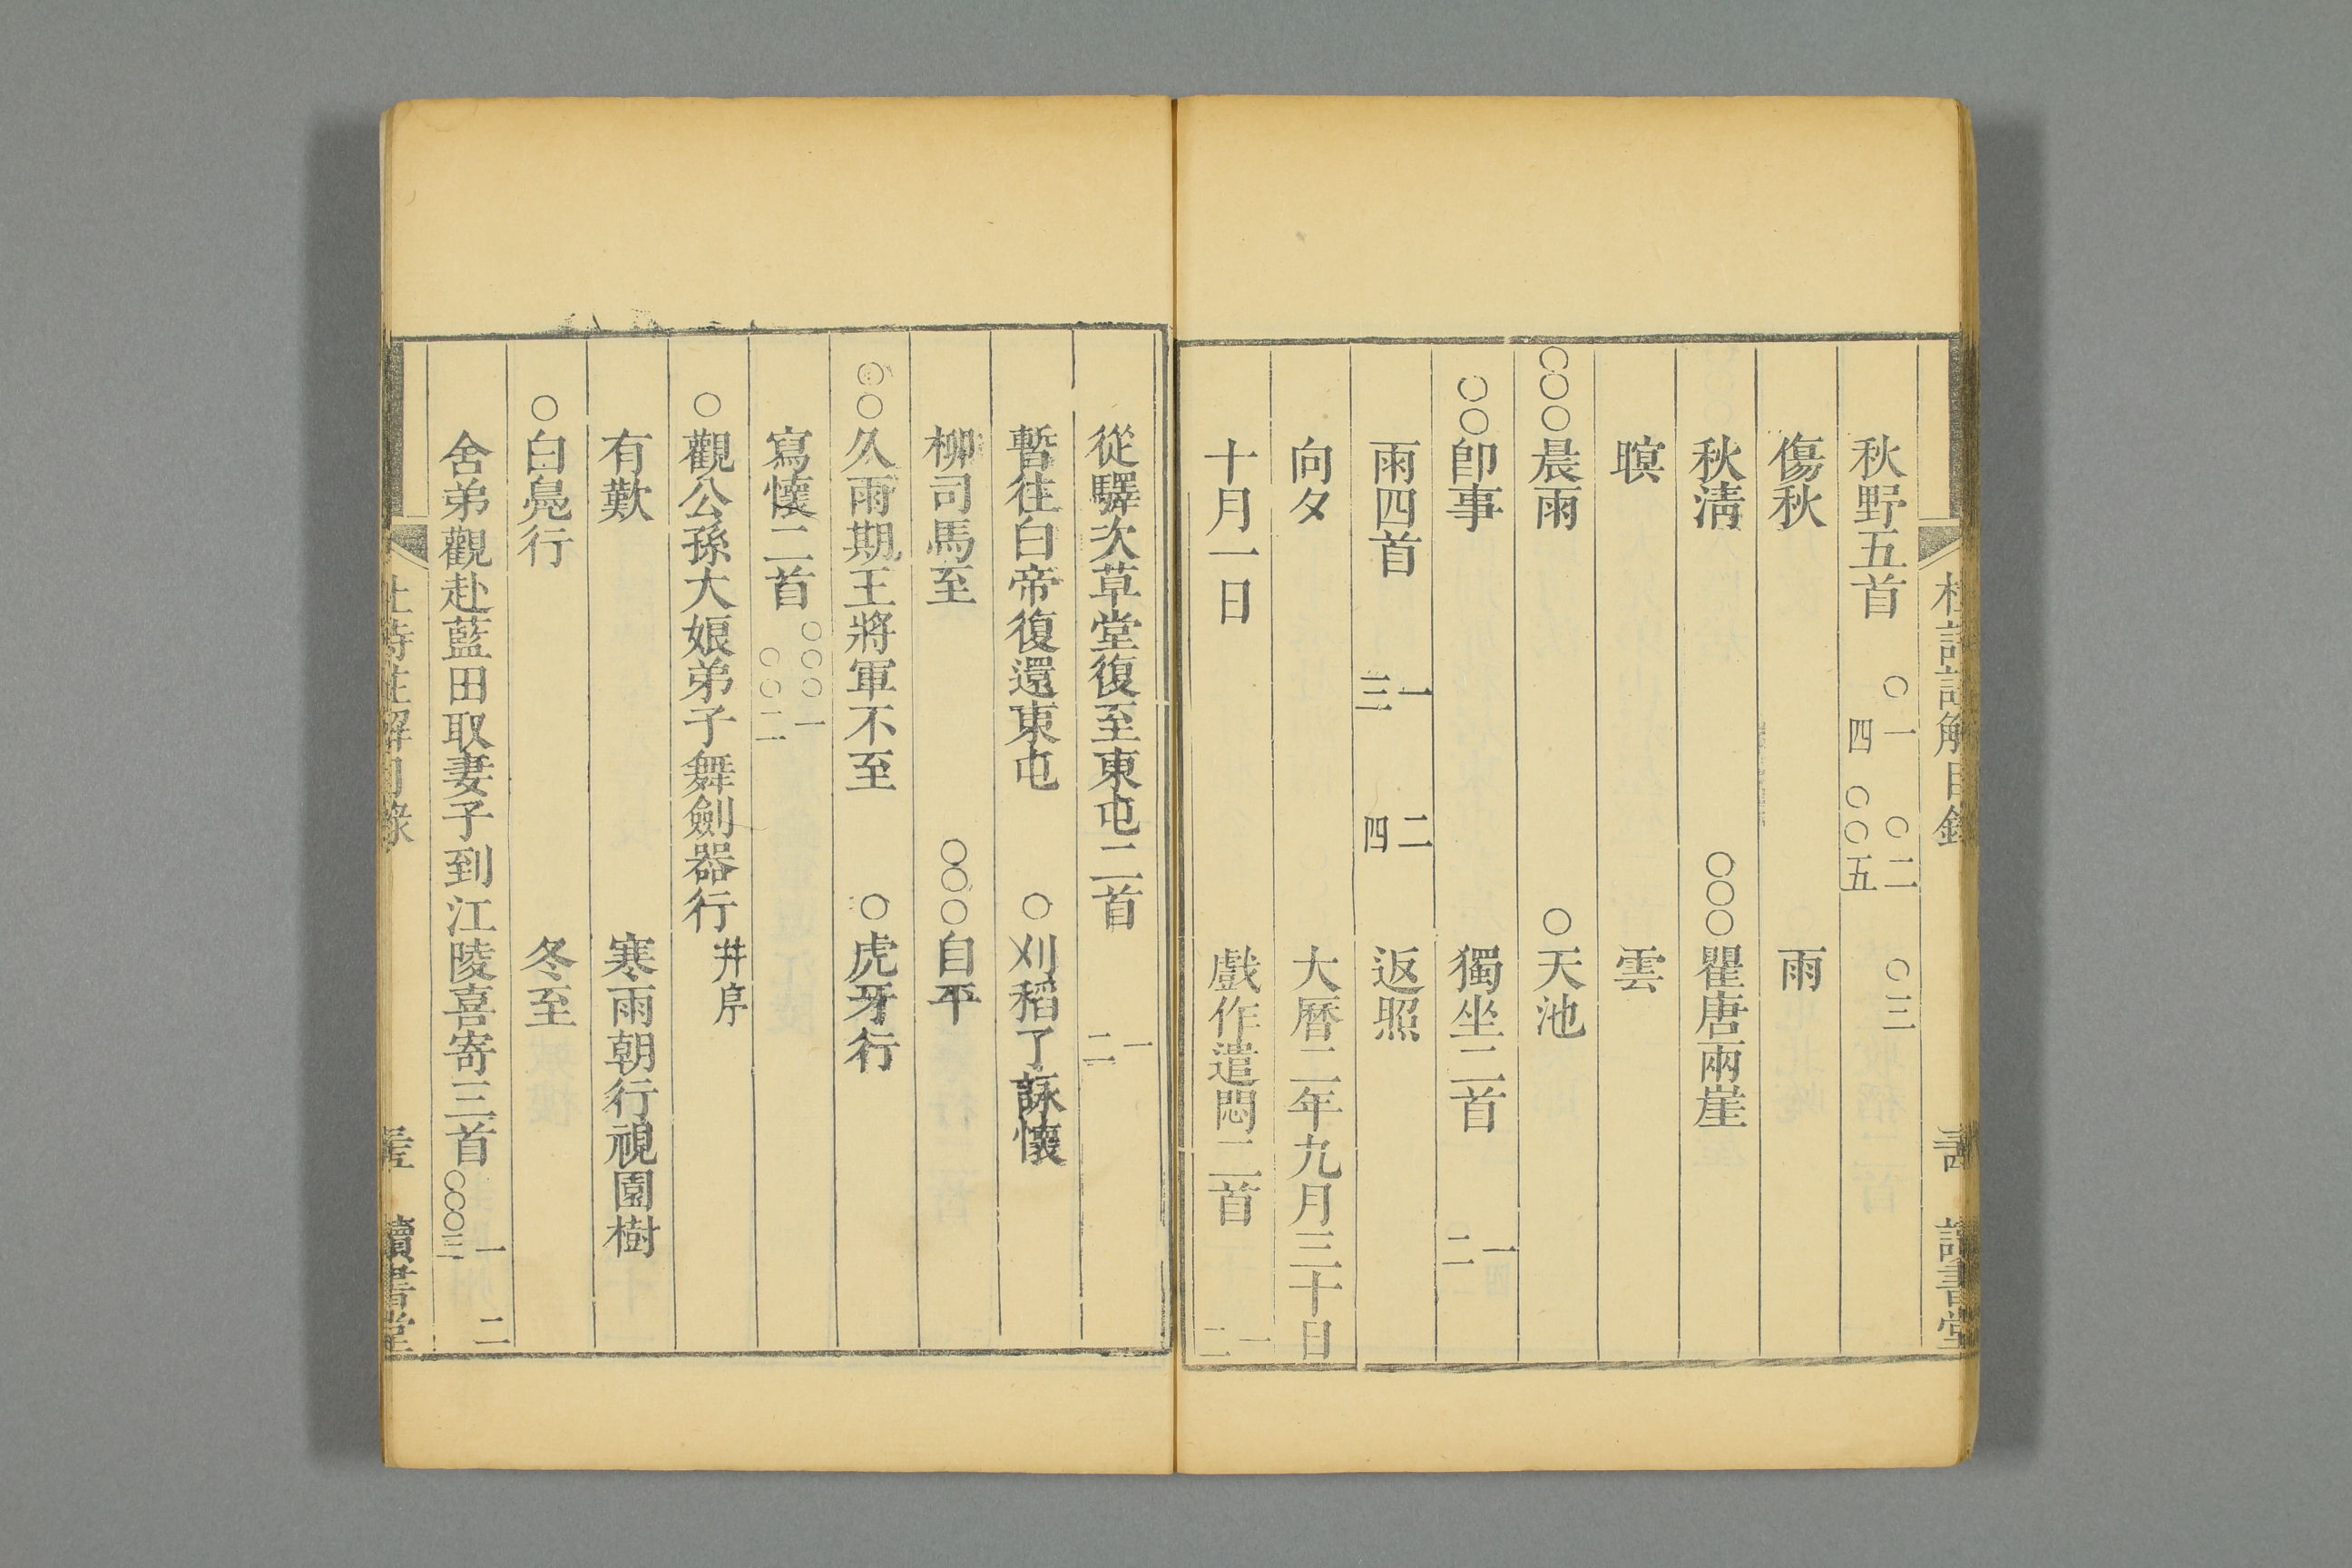 杜詩註解目錄
讀書堂
秋野五首 ○一 ○二 ○三 四 ○○○五
傷秋 雨
秋清 ○○○瞿唐兩崖
暝 雲
○○○晨雨 ○天池
○○卽事 獨坐二首 一 二
雨四首 一 二 三 四 返照
向夕 大曆二年九月三十日
十月一日 戲作遣悶二首 一 二
從驛次草堂復至東屯二首 一 二
暫往白帝復還東屯 ○刈稻了詠懷
柳司馬至 ○○○自平
○○久雨期王將軍不至 ○虎牙行
寫懷二首 ○○○一 ○○二
○觀公孫大娘弟子舞劍器行 幷序
有歎 寒雨朝行視園樹
○白鳧行 冬至
舍弟觀赴藍田取妻子到江陵喜寄三首 一 二 ○○○三
杜詩註解目錄
讀書堂